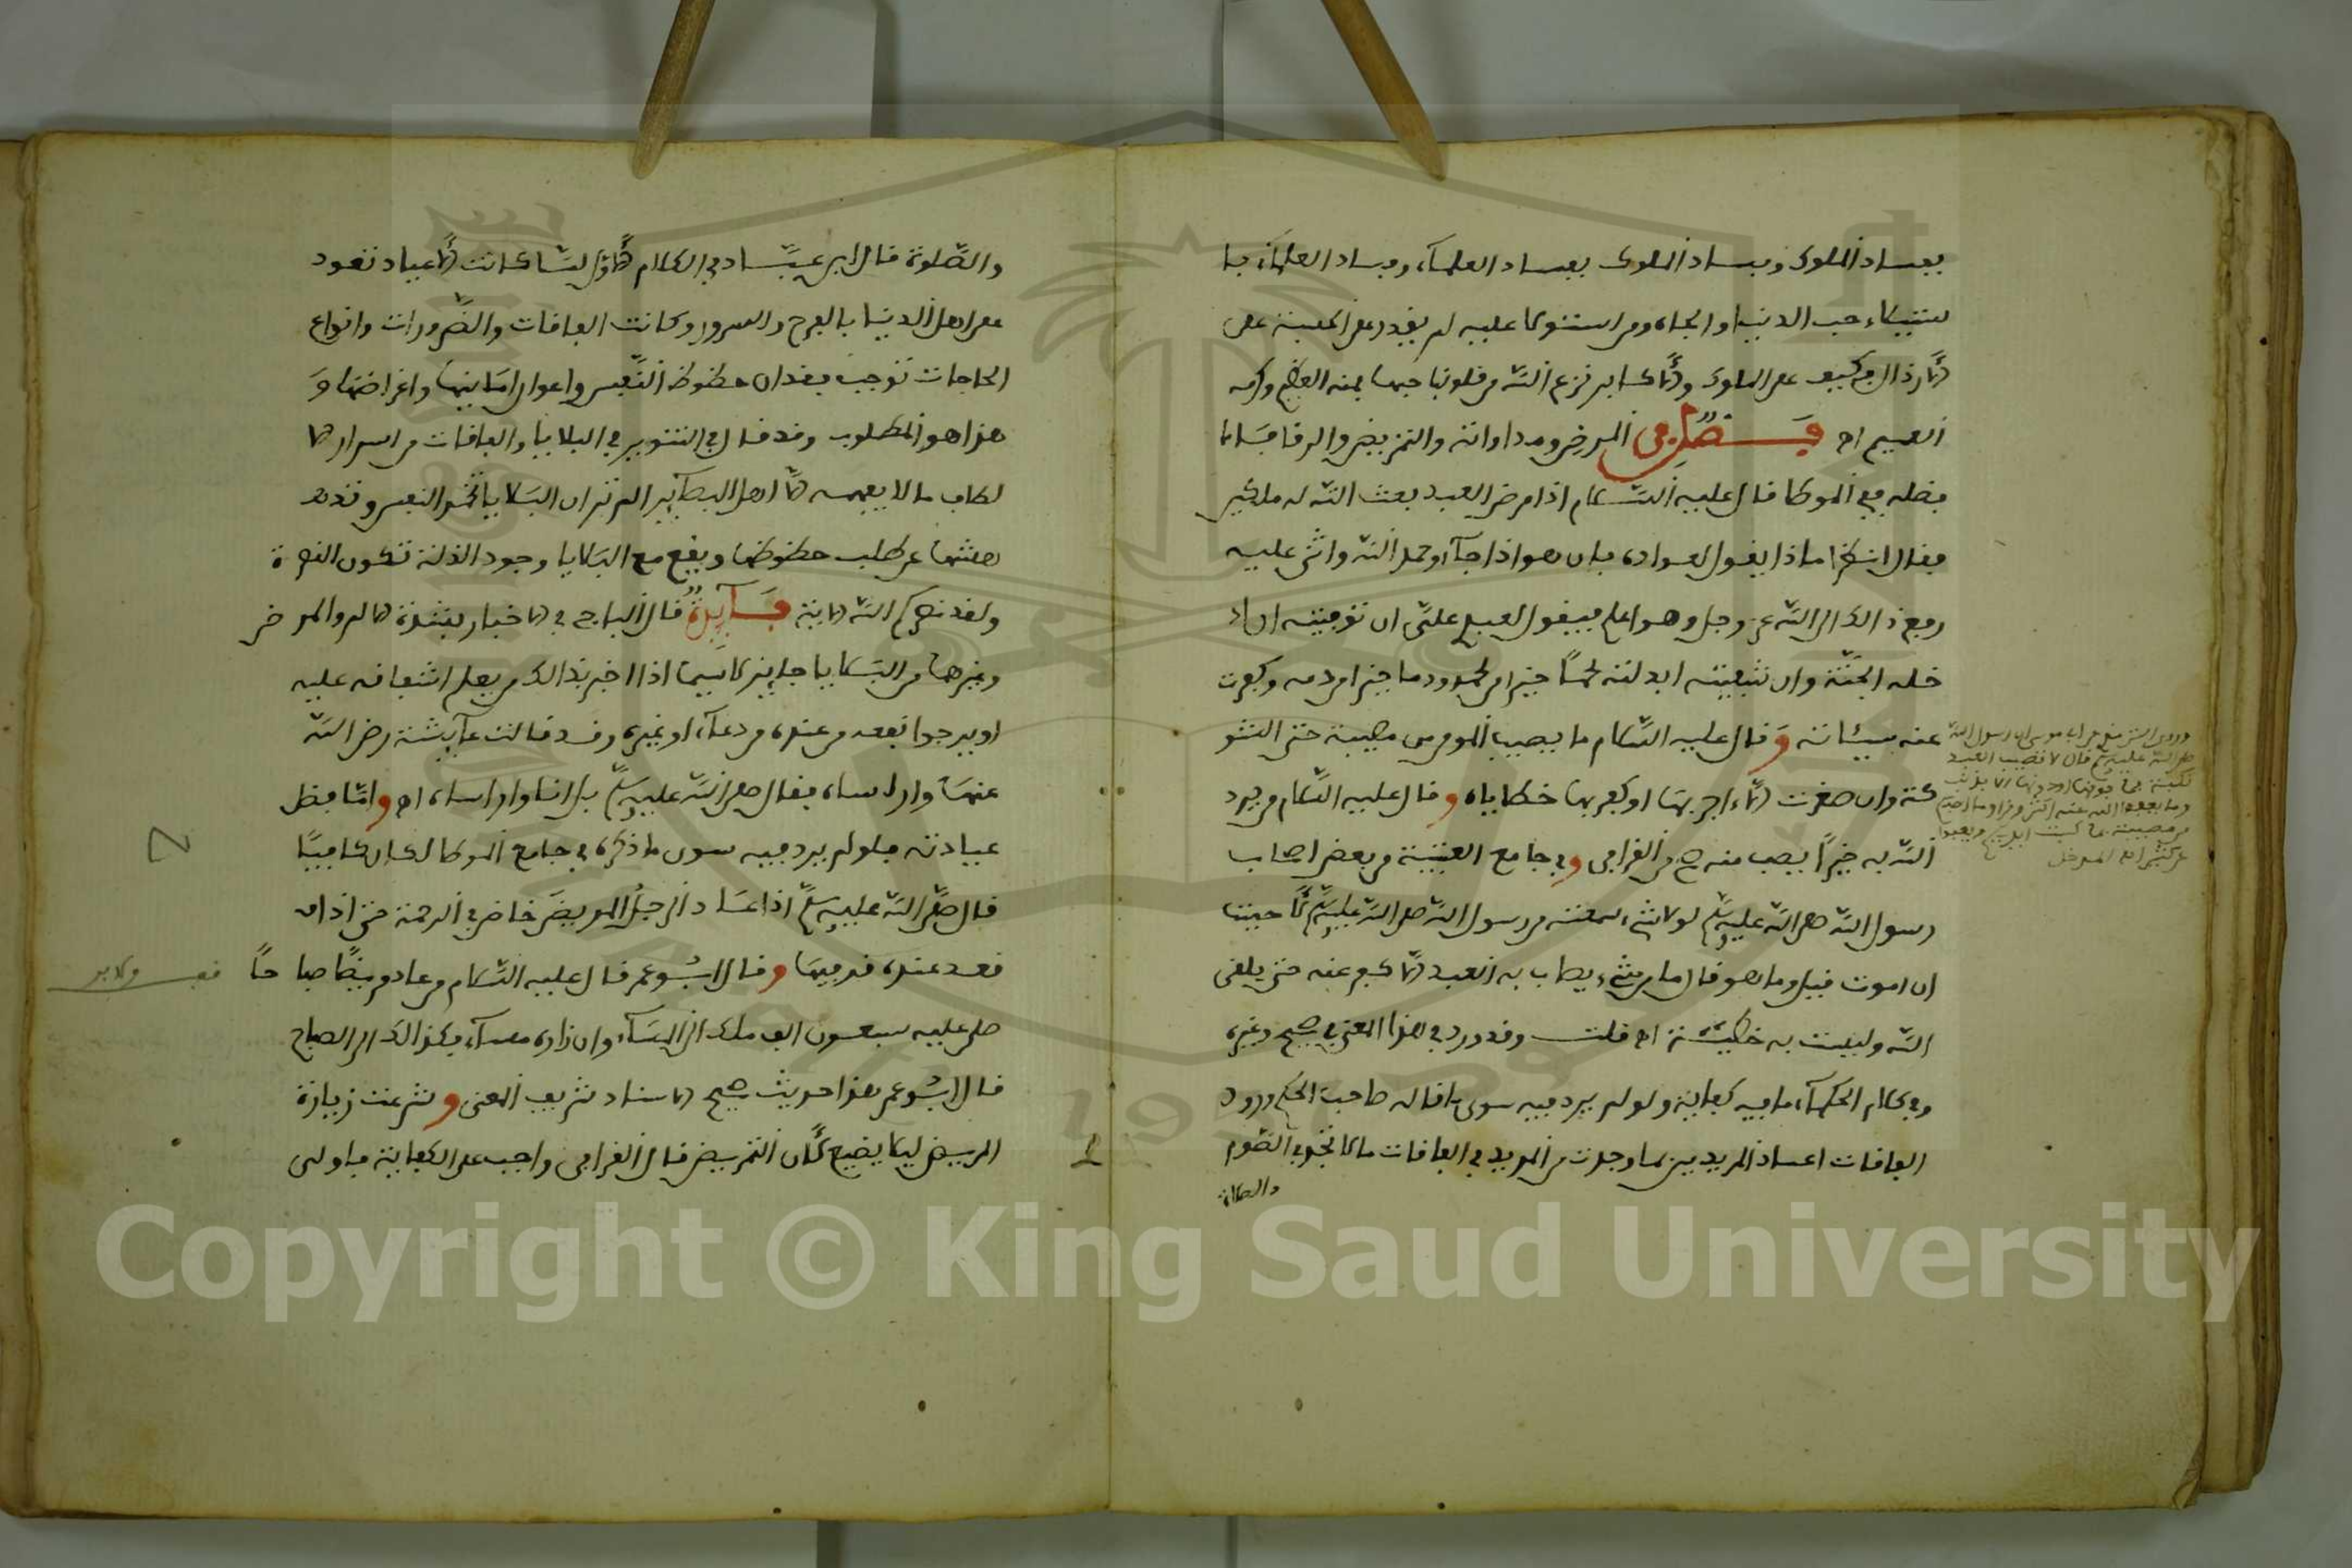 بفساد الملوك وفساد الملوك بفساد العلماء وفساد العلماء با
ستيلاء حب الدنيا والجاه ومن استولا عليه لم يقدر على الحسبة على
الأرذال فكيف على الملوك والأكابر نزع الله من قلوبنا حبها بمنه العظيم وكرمه
العميم اه فصل في المرض ومداواته والتمريض والرقا فاما
فضله ففي الموطا قال عليه السلام اذا مرض العبد بعث الله له ملكين
فقال انظرا ماذا يقول لعواده فان هو اذا جآءوه حمد الله واثنى عليه
رفع ذالك الى الله عز وجل وهو اعلم فيقول لعبدي علي ان توفيته ان اد
خله الجنة وان شفيته ابدلته لحما خيرا من لحمه ودما خيرا من دمه وكفرت
عنه سيئاته وقال عليه السلام ما يصيب المومن مصيبة حتى الشو
كة وان صغرت الاء اجر بها او كفر بها خطاياه وقال عليه السلام من يرد
الله به خيرا يصب منه صح من القرافي وفي جامع العتبية من بعض اصحاب
رسول الله صلى الله عليه وسلم لولا شيء سمعته من رسول الله صلى الله عليه وسلم لأحببنا
ان اموت قيل وما هو قال ما من شيء يصاب به العبد الا كفر عنه حتى يلقى
الله وليست به خطيئة اه قلت وقد ورد في هذا المعنى في صحيح وغيره
وفي كلام الحكماء ما فيه كفاية ولو لم يرد فيه سوى ما قاله صاحب الحكم ورود
الفاقات اعياد المريدين بما وجدت من المزيد في الفاقات ما لا تجده في الصوم
والصلاة
وروى الترمذي عن ابي موسى ان رسول الله
صلى الله عليه وسلم قال لا تصيب العبد
نكبة فما فوقها او دونها الا بذنب
وما يعفو الله عنه اكثر وقرا وما اصابكم
من مصيبة فبما كسبت ايديكم ويعفوا
عن كثير اه المدخل
والصلوة قال ابن عباد في الكلام الأول لما كانت الأعياد تعود
على اهل الدنيا بالفرح والسرور وكانت الفاقات والضرورات وانواع
الحاجات توجب فقدان حظوظ النفس واعواز امانيها واغراضها و
هذا هو المطلوب وقد قال في التنوير في البلايا والفاقات من اسرار الا
لطاف ما لا يفهمه الا اهل البصآئر الم تر ان البلايا تخمد النفس وتذهـ
هشها عن طلب حظوظها ويقع مع البلايا وجود الذلة تكون النصرة
ولقد نصركم الله الاية فآئدة قال الباجي في الاخبار بشدة الالم والمرض
وغيرهما من البلايا جايز لا سيما اذا اخبر بذالك من يعلم اشفاقه عليه
او يرجوا نفعه من عنده من دعآء او غيره وقد قالت عآيشة رضي الله
عنها واراساه فقال صلى الله عليه وسلم بل انا واراساه اه واما فضل
عيادته فلو لم يرد فيه سوى ما ذكره في جامع الموطا لكان كافيا
قال صلى الله عليه وسلم اذا عاد الرجل المريض خاض في الرحمة حتى اذا
قعد عنده قر فيها وقال ابو عمر قال عليه السلام من عاد مريضا صباحا
صلى عليه سبعون الف ملك الى المسآء وان زاره مسآء فكذالك الى الصباح
قال ابو عمر هذا حديث صحيح الاسناد شريف المعنى وشرعت زيارة
المريض ليلا يضيع لأن التمريض قال القرافي واجب على الكفاية فاولى